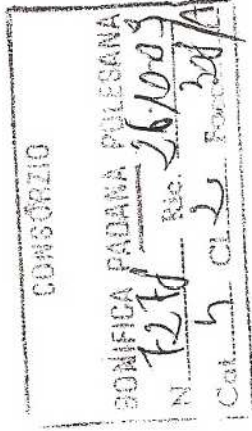 CONSORZIO
BONIFICA PADANA POLESANA
N. 7270 Ric. 26.10.05
Cat. 4 Cl. 2 Fasc.